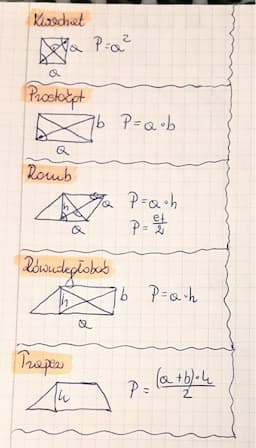 Kwadrat
a P=a²
a
Prostokąt
b P=a·b
a
Romb
h a P=a·h
a P=ef/2
Równoległobok
h b P=a·h
a
Trapez
h P=(a+b)·h/2